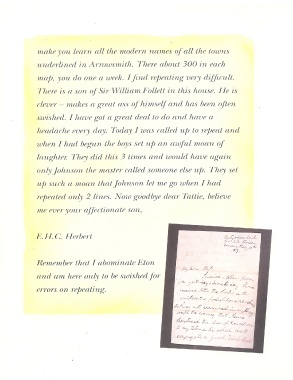 make you learn all the modern names of all the towns
underlined in Arrowsmith. There about 300 in each
map, you do one a week. I find repeating very difficult.
There is a son of Sir William Follett in this house. He is
clever – makes a great ass of himself and has been often
swished. I have got a great deal to do and have a
headache every day. Today I was called up to repeat and
when I had begun the boys set up an awful moan of
laughter. They did this 3 times and would have again
only Johnson the master called someone else up. They set
up such a moan that Johnson let me go when I had
repeated only 2 lines. Now goodbye dear Tattie, believe
me ever your affectionate son,
E.H.C. Herbert
Remember that I abominate Eton
and am here only to be swished for
errors on repeating.